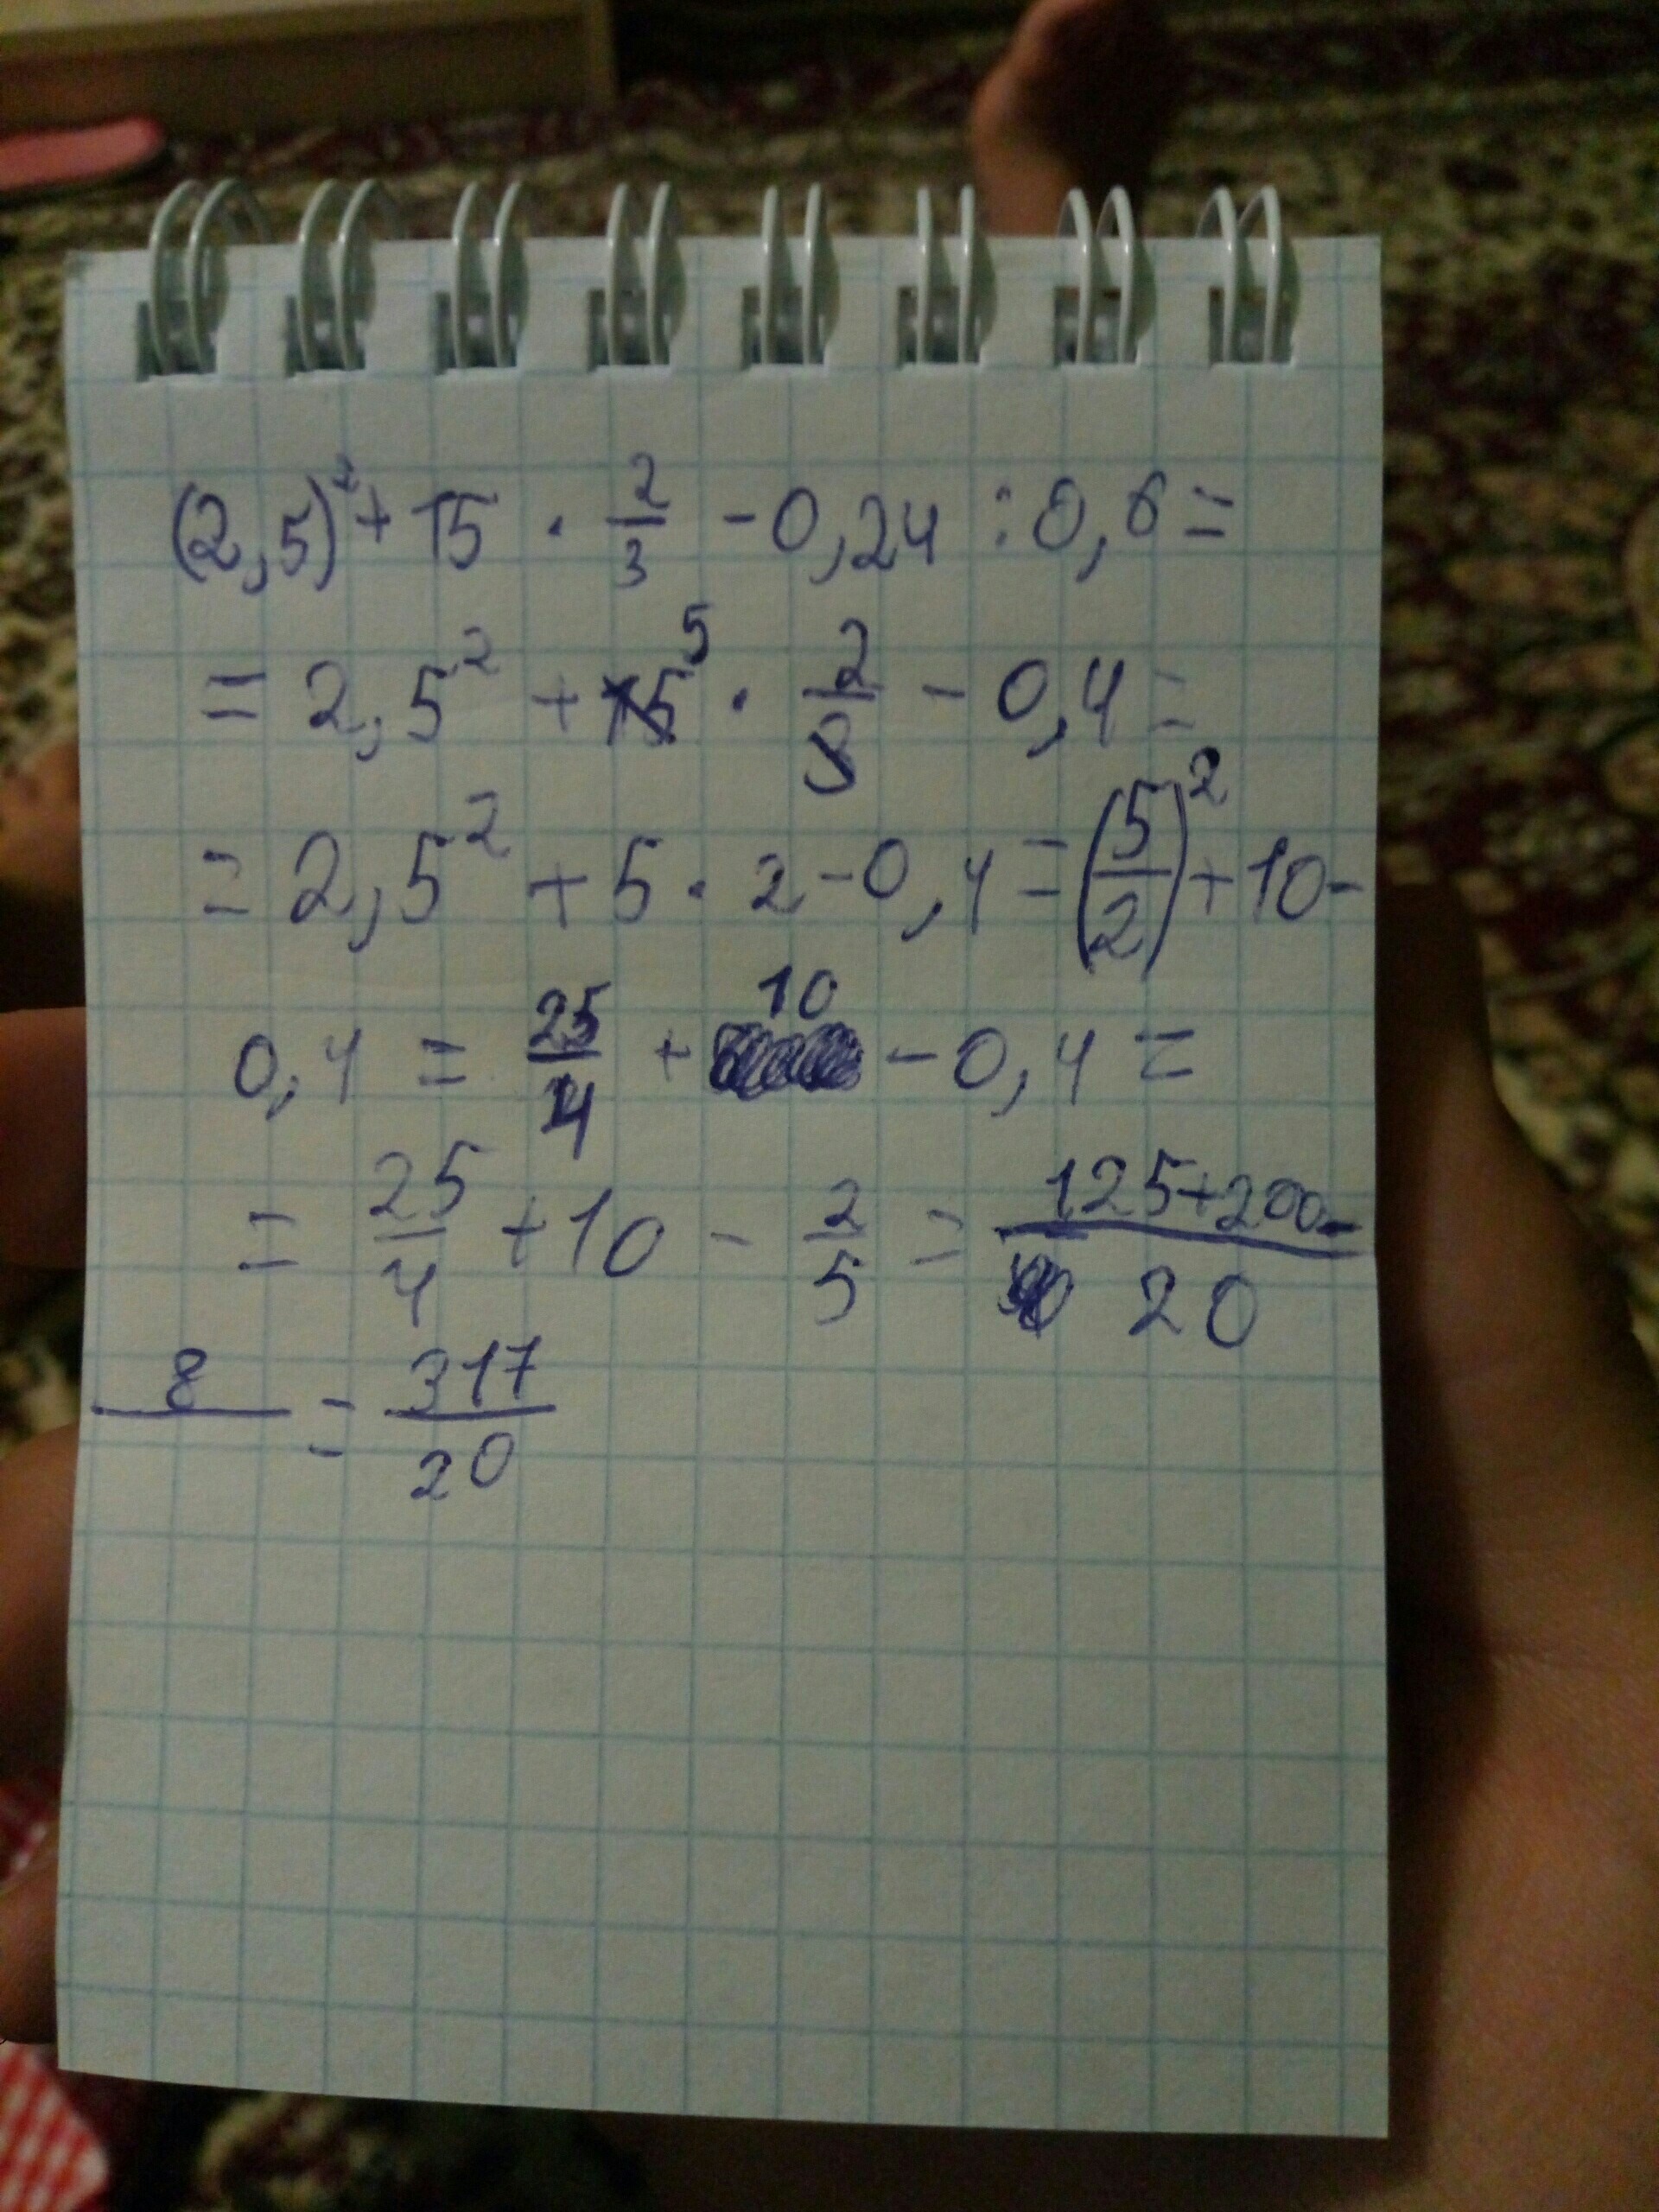 (2,5)² + 15 · 2/3 - 0,24 : 0,6 =
= 2,5² + 15 5 · 2/3 - 0,4 =
= 2,5² + 5 · 2 - 0,4 = (5/2)² + 10 -
0,4 = 25/4 + 10 - 0,4 =
= 25/4 + 10 - 2/5 = 125+200-/20
8/ = 317/20